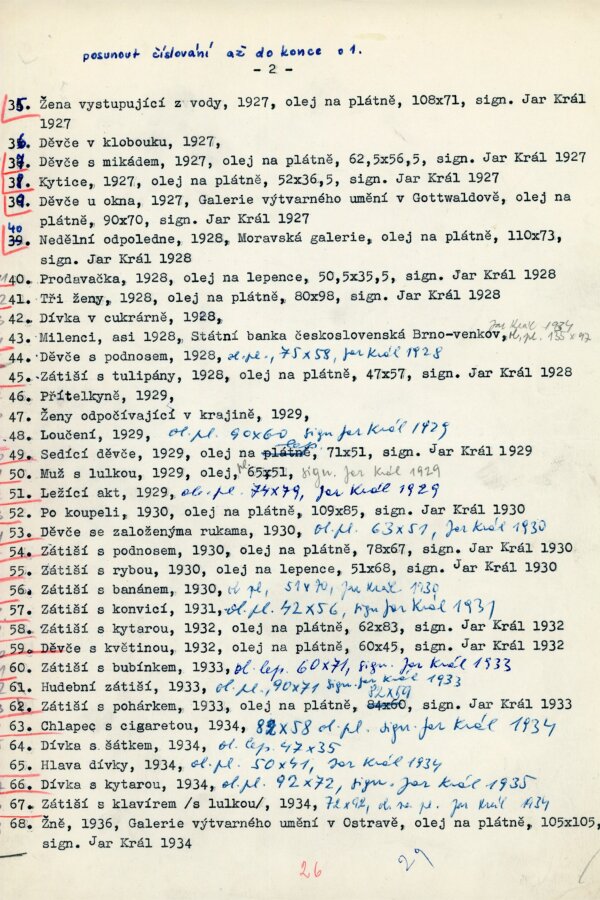 posunout číslování až do konce o 1.
- 2 -
35. Žena vystupující z vody, 1927, olej na plátně, 108x71, sign. Jar Král
1927
36. Děvče v klobouku, 1927,
37. Děvče s mikádem, 1927, olej na plátně, 62,5x56,5, sign. Jar Král 1927
38. Kytice, 1927, olej na plátně, 52x36,5, sign. Jar Král 1927
39. Děvče u okna, 1927, Galerie výtvarného umění v Gottwaldově, olej na
plátně, 90x70, sign. Jar Král 1927
40
39. Nedělní odpoledne, 1928, Moravská galerie, olej na plátně, 110x73,
sign. Jar Král 1928
40. Prodavačka, 1928, olej na lepence, 50,5x35,5, sign. Jar Král 1928
41. Tři ženy, 1928, olej na plátně, 80x98, sign. Jar Král 1928
42. Dívka v cukrárně, 1928,
43. Milenci, asi 1928, Státní banka československá Brno-venkov, Jar Král 1934 ol. pl. 155x97
44. Děvče s podnosem, 1928, ol. pl., 75x58, Jar Král 1928
45. Zátiší s tulipány, 1928, olej na plátně, 47x57, sign. Jar Král 1928
46. Přítelkyně, 1929,
47. Ženy odpočívající v krajině, 1929,
48. Loučení, 1929, ol. pl. 90x60, sign Jar Král 1929
49. Sedící děvče, 1929, olej na plátně lep, 71x51, sign. Jar Král 1929
50. Muž s lulkou, 1929, olej, pl. 65x51, sign. Jar Král 1929
51. Ležící akt, 1929, ol. pl. 74x79, Jar Král 1929
52. Po koupeli, 1930, olej na plátně, 109x85, sign. Jar Král 1930
53. Děvče se založenýma rukama, 1930, ol. pl. 63x51, Jar Král 1930
54. Zátiší s podnosem, 1930, olej na plátně, 78x67, sign. Jar Král 1930
55. Zátiší s rybou, 1930, olej na lepence, 51x68, sign. Jar Král 1930
56. Zátiší s banánem, 1930, ol. pl., 51x70, Jar Král 1930
57. Zátiší s konvicí, 1931, ol. pl. 42x56, sign Jar Král 1931
58. Zátiší s kytarou, 1932, olej na plátně, 62x83, sign. Jar Král 1932
59. Děvče s květinou, 1932, olej na plátně, 60x45, sign. Jar Král 1932
60. Zátiší s bubínkem, 1933, ol. lep. 60x71, sign. Jar Král 1933
61. Hudební zátiší, 1933, ol. pl., 90x71 sign. Jar Král 1933
82x59
62. Zátiší s pohárkem, 1933, olej na plátně, 84x60, sign. Jar Král 1933
63. Chlapec s cigaretou, 1934, 82x58 ol. pl. sign. Jar Král 1934
64. Dívka s šátkem, 1934, ol. lep. 47x35
65. Hlava dívky, 1934, ol. pl. 50x41, Jar Král 1934
66. Dívka s kytarou, 1934, ol. pl. 92x72, sign. Jar Král 1935
67. Zátiší s klavírem /s lulkou/, 1934, 72x92, o. na pl. Jar Král 1934
68. Žně, 1936, Galerie výtvarného umění v Ostravě, olej na plátně, 105x105,
sign. Jar Král 1934
26
29